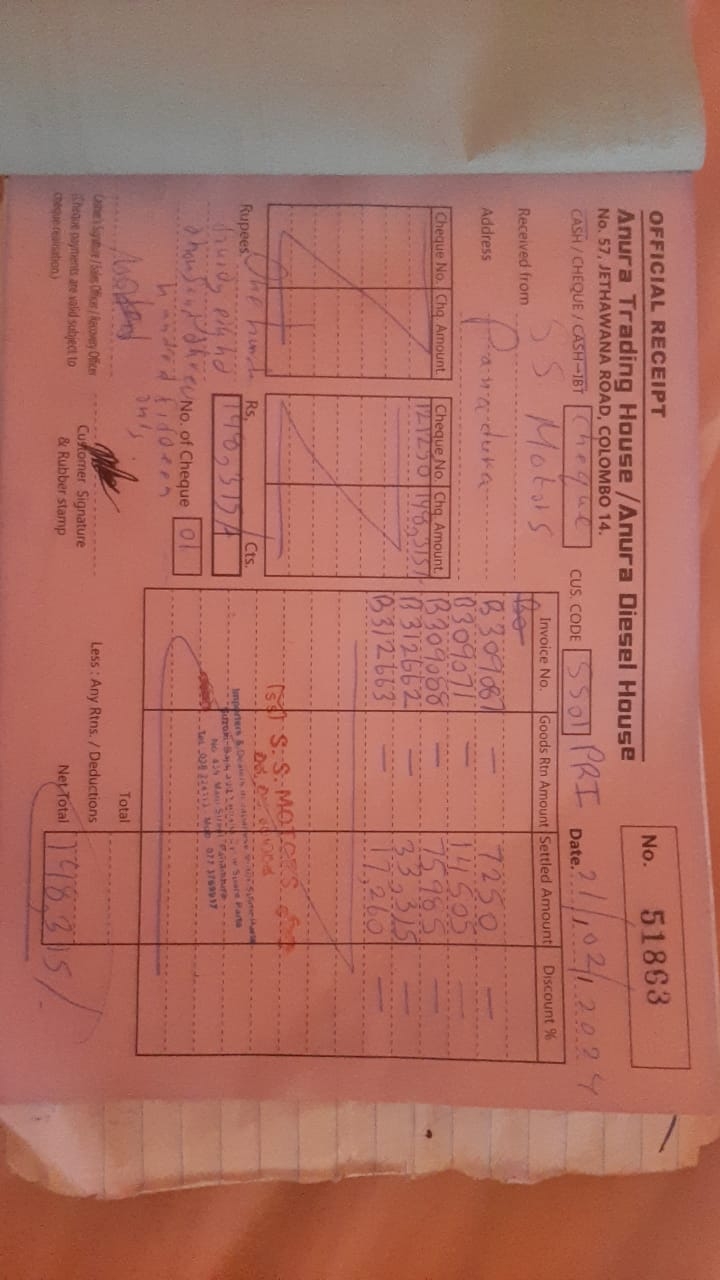 OFFICIAL RECEIPT
Anura Trading House / Anura Diesel House
No. 57, JETHAWANA ROAD, COLOMBO 14.
No. 51863
CASH / CHEQUE / CASH-IBT Cheque CUS. CODE SS01 PRI Date. 21/02/2024
Received from S S Motors
Address Panadura
Cheque No. Chq. Amount
Cheque No. Chq. Amount
148,315/
Invoice No. Goods Rtn Amount Settled Amount Discount %
B309087 — 7250 —
B309071 — 14505 —
B309088 — 75985 —
B312662 — 33,315 —
B312663 — 17,260 —
Rupees One hund
Rs. 148,315/ Cts.
fourty eight
thousand three
hundred fifteen
only
No. of Cheque 01
S.S. MOTORS
Importers & Dealers
Panadura
Total
Less : Any Rtns. / Deductions
Net Total 148,315/
Cashier's Signature / Sales Officer / Recovery Officer
(Cheque payments are valid subject to
cheque realisation.)
Customer Signature
& Rubber stamp